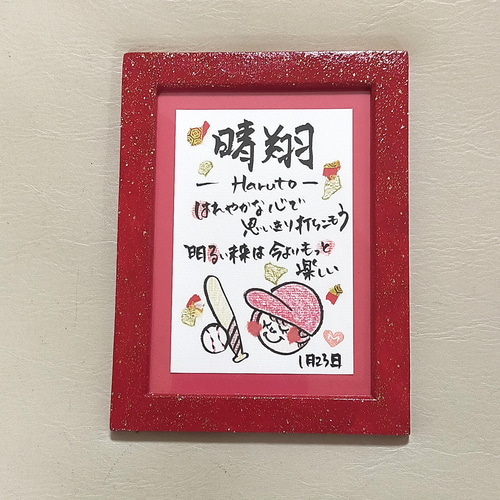 晴翔
― Haruto ―
はれやかな心で
思いきり打ちこもう
明るい未来は今よりもっと
楽しい
1月23日